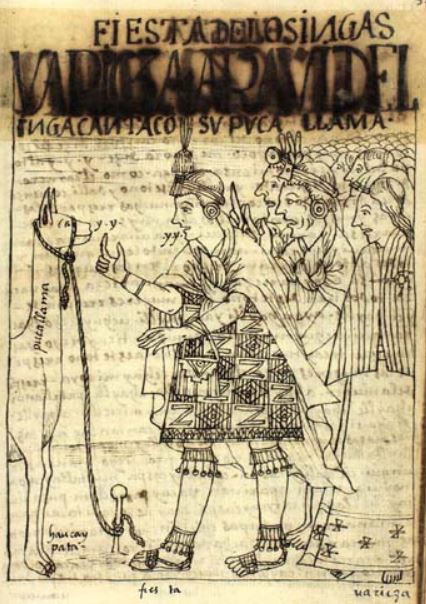 FIESTA DE LOS INGAS
VARICZA ARAVI DEL
INGA CANTA CO SV PVCA LLAMA
y.y
y.y
puca llama
haucay
pata
fies ta
uaricza